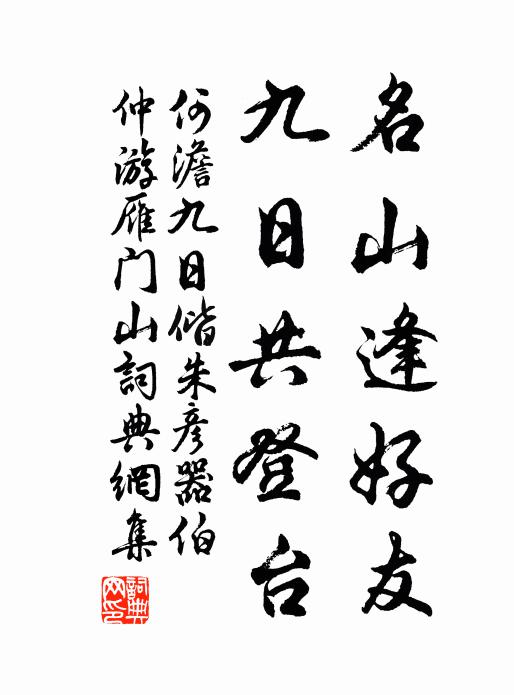 名山逢好友
九日共登台
何澹九日偕朱彦器伯
仲游雁门山詞典網集
詞典網印